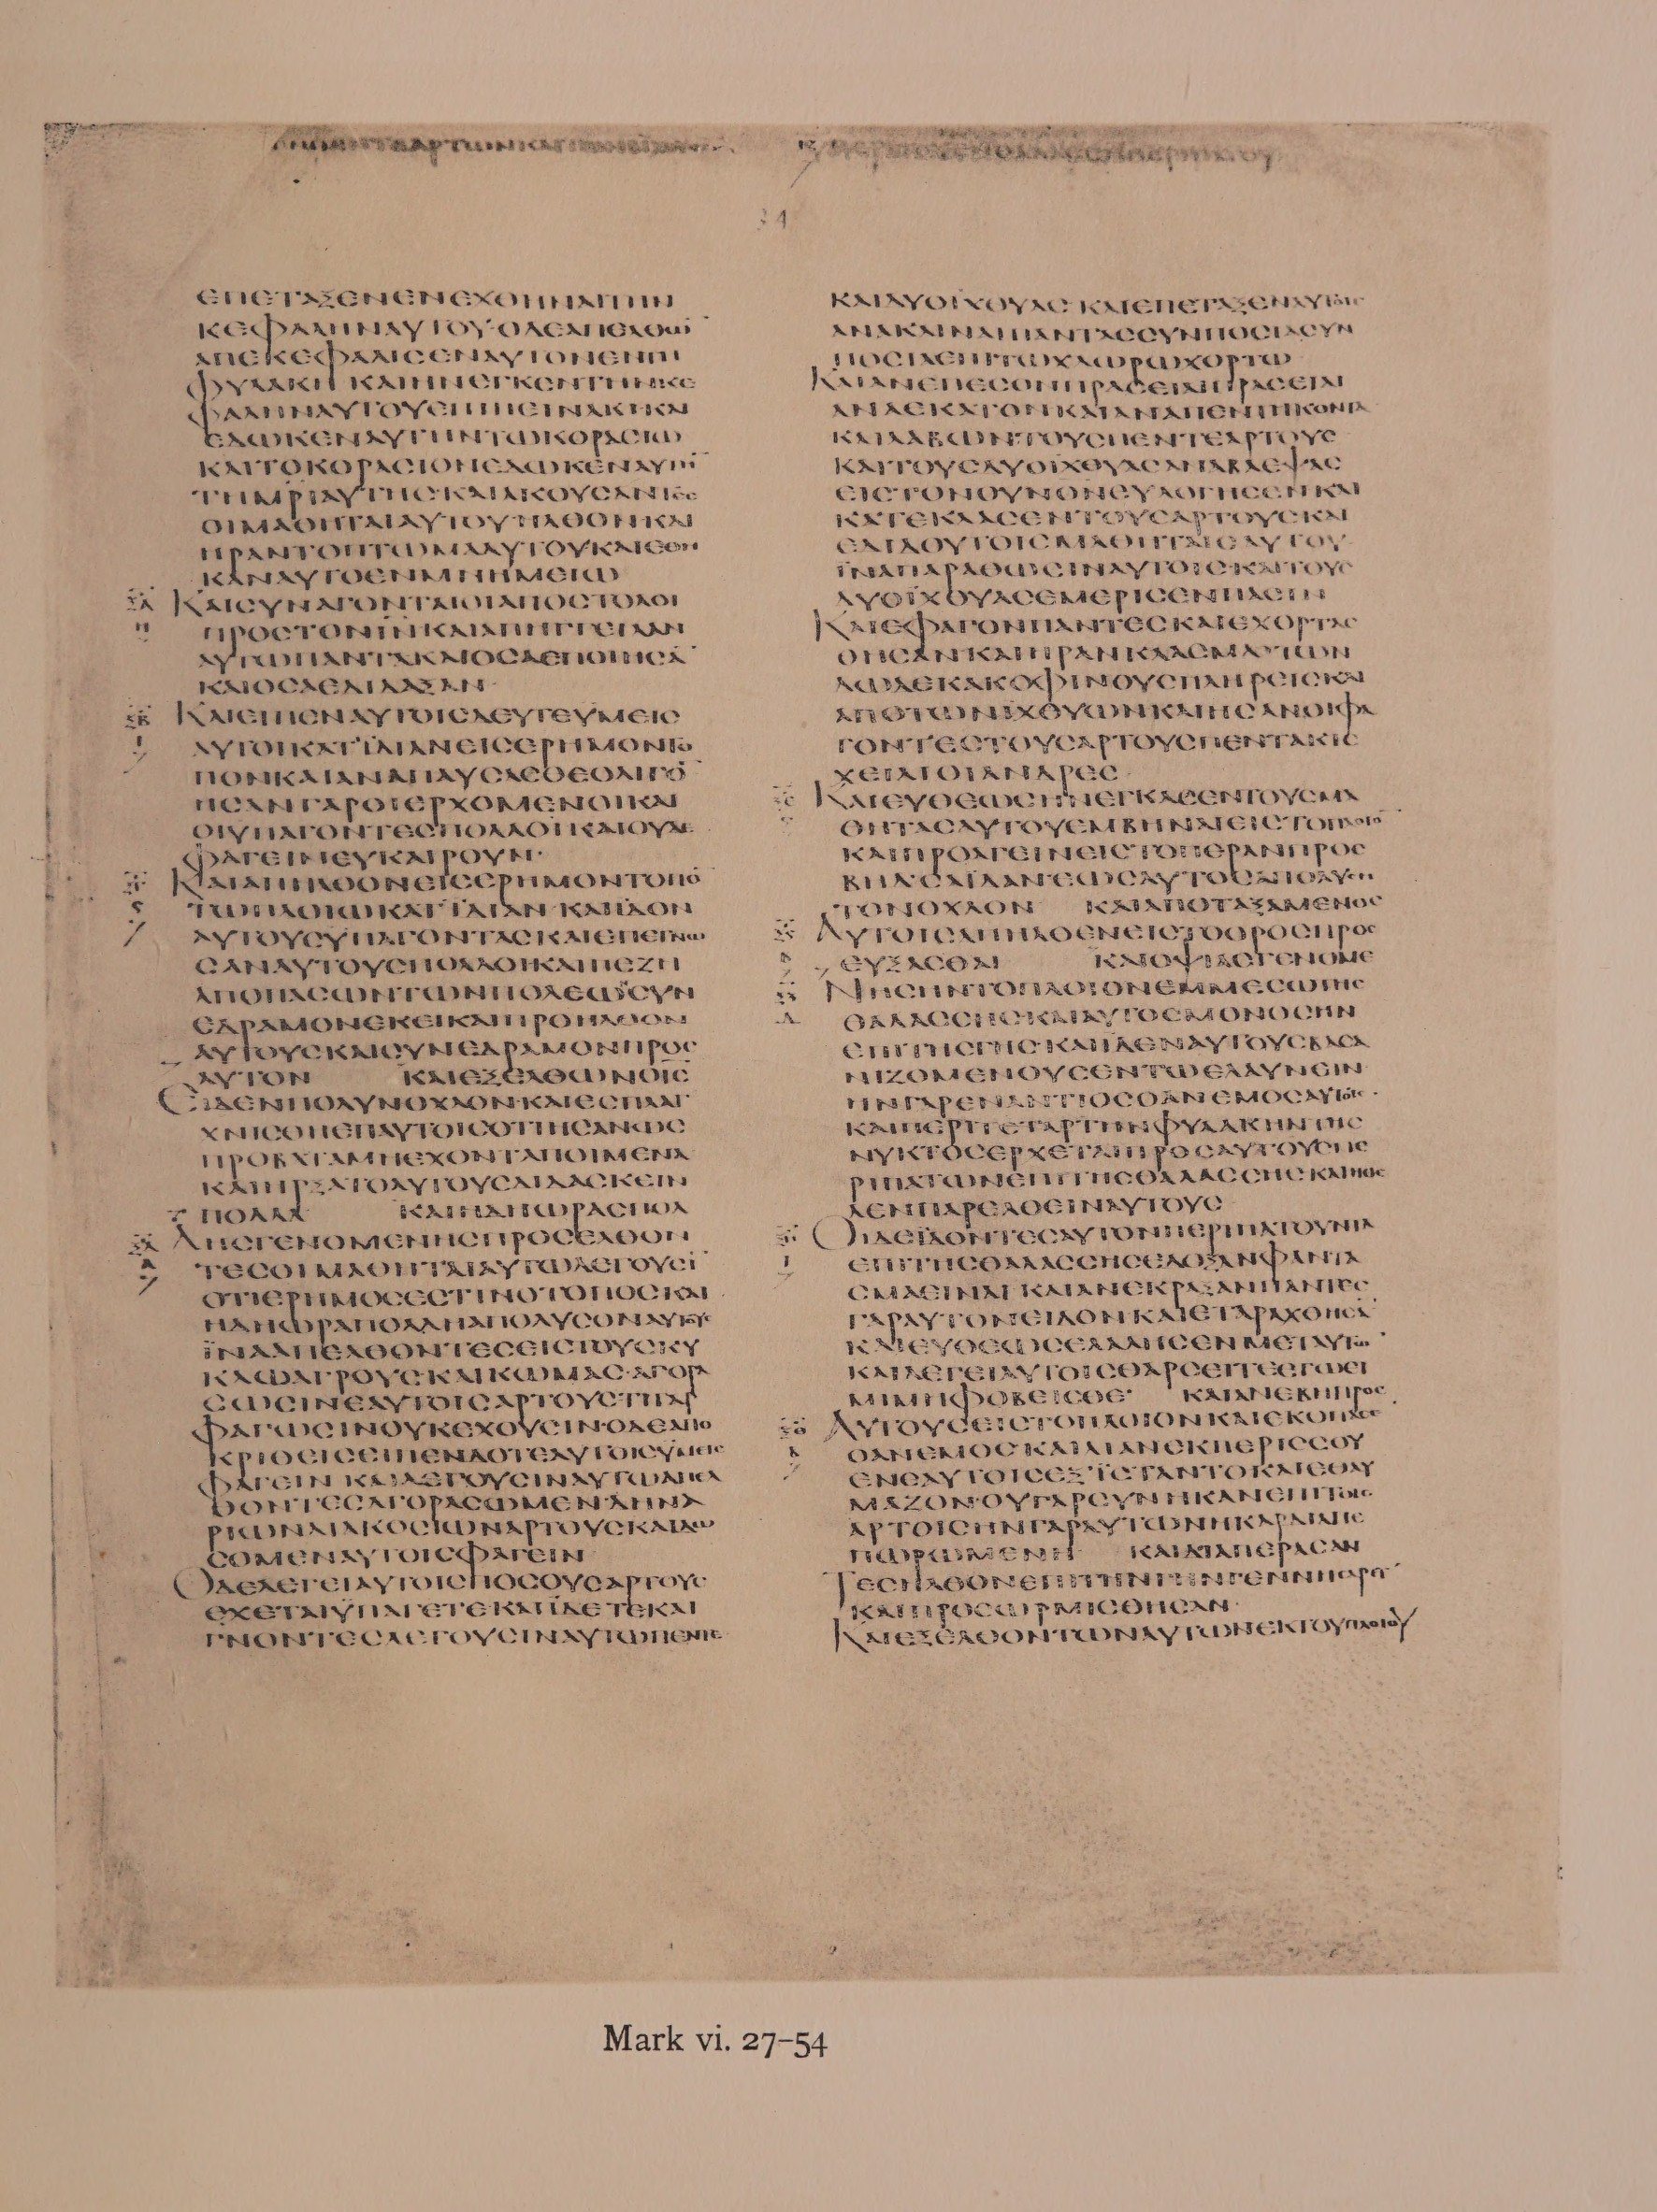 ΕΠΕΤΑΞΕΝΕΝΕΧΘΗΝΑΙΤΗΝ
ΚΕΦΑΛΗΝΑΥΤΟΥ·ΟΔΕΑΠΕΛΘΩ̅
ΑΠΕΚΕΦΑΛΙϹΕΝΑΥΤΟΝΕΝΤΗ
ΦΥΛΑΚΗ ΚΑΙΗΝΕΓΚΕΝΤΗΝΚΕ
ΦΑΛΗΝΑΥΤΟΥΕΠΙΠΕΙΝΑΚΙΚΑΙ
ΕΔΩΚΕΝΑΥΤΗΝΤΩΚΟΡΑϹΙΩ
ΚΑΙΤΟΚΟΡΑϹΙΟΝΕΔΩΚΕΝΑΥΤΗ̅
ΤΗΜΡΙΑΥΤΗϹΚΑΙΑΚΟΥϹΑΝΤΕϹ
ΟΙΜΑΘΗΤΑΙΑΥΤΟΥΗΛΘΟΝΚΑΙ
ΗΡΑΝΤΟΠΤΩΜΑΑΥΤΟΥΚΑΙΕΘΗ
ΚΑΝΑΥΤΟΕΝΜΝΗΜΕΙΩ
ΚΑΙϹΥΝΑΓΟΝΤΑΙΟΙΑΠΟϹΤΟΛΟΙ
ΠΡΟϹΤΟΝΙ̅Ν̅ΚΑΙΑΠΗΓΓΕΙΛΑΝ
ΑΥΤΩΠΑΝΤΑΚΑΙΟϹΑΕΠΟΙΗϹΑ̅
ΚΑΙΟϹΑΕΔΙΔΑΞΑΝ·
ΚΑΙΕΙΠΕΝΑΥΤΟΙϹΔΕΥΤΕΥΜΕΙϹ
ΑΥΤΟΙΚΑΤΪΔΙΑΝΕΙϹΕΡΗΜΟΝΤΟ
ΠΟΝΚΑΙΑΝΑΠΑΥϹΑϹΘΕΟΛΙΓΟ̅
ΗϹΑΝΓΑΡΟΙΕΡΧΟΜΕΝΟΙΚΑΙ
ΟΙΥΠΑΓΟΝΤΕϹΠΟΛΛΟΙΚΑΙΟΥΔΕ
ΦΑΓΕΙΝΕΥΚΑΙΡΟΥΝ·
ΚΑΙΑΠΗΛΘΟΝΕΙϹΕΡΗΜΟΝΤΟΠΟ̅
ΤΩΠΛΟΙΩΚΑΤΪΔΙΑΝ·ΚΑΙΪΔΟΝ
ΑΥΤΟΥϹΥΠΑΓΟΝΤΑϹΚΑΙΕΠΕΓΝΩ
ϹΑΝΑΥΤΟΥϹΠΟΛΛΟΙΚΑΙΠΕΖΗ
ΑΠΟΠΑϹΩΝΤΩΝΠΟΛΕΩΝϹΥΝ
ΕΔΡΑΜΟΝΕΚΕΙΚΑΙΠΡΟΗΛΘΟΝ
ΑΥΤΟΥϹΚΑΙϹΥΝΕΔΡΑΜΟΝΠΡΟϹ
ΑΥΤΟΝ ΚΑΙΕΞΕΛΘΩΝΟΙϹ
ΕΙΔΕΝΠΟΛΥΝΟΧΛΟΝ·ΚΑΙΕϹΠΛΑΓ
ΧΝΙϹΘΗΕΠΑΥΤΟΙϹΟΤΙΗϹΑΝΩϹ
ΠΡΟΒΑΤΑΜΗΕΧΟΝΤΑΠΟΙΜΕΝΑ
ΚΑΙΗΡΞΑΤΟΑΥΤΟΥϹΔΙΔΑϹΚΕΙΝ
ΠΟΛΛΑ ΚΑΙΗΔΗΩΡΑϹΠΟΛ
ΛΗϹΓΕΝΟΜΕΝΗϹΠΡΟϹΕΛΘΟΝ
ΤΕϹΟΙΜΑΘΗΤΑΙΑΥΤΩΛΕΓΟΥϹΙ̅
ΟΤΙΕΡΗΜΟϹΕϹΤΙΝΟΤΟΠΟϹΚΑΙ
ΗΔΗΩΡΑΠΟΛΛΗΑΠΟΛΥϹΟΝΑΥΤΟΥϹ
ΪΝΑΑΠΕΛΘΟΝΤΕϹΕΙϹΤΟΥϹΚΥ
ΚΛΩΑΓΡΟΥϹΚΑΙΚΩΜΑϹ·ΑΓΟΡΑ
ϹΩϹΙΝΕΑΥΤΟΙϹΑΡΤΟΥϹΤΙΓΑΡ
ΦΑΓΩϹΙΝΟΥΚΕΧΟΥϹΙΝ·ΟΔΕΑΠΟ
ΚΡΙΘΕΙϹΕΙΠΕΝΔΟΤΕΑΥΤΟΙϹΥΜΕΙϹ
ΦΑΓΕΙΝ ΚΑΙΛΕΓΟΥϹΙΝΑΥΤΩΑΠΕΛ
ΘΟΝΤΕϹΑΓΟΡΑϹΩΜΕΝΔΗΝΑ
ΡΙΩΝΔΙΑΚΟϹΙΩΝΑΡΤΟΥϹΚΑΙΔΩ
ϹΟΜΕΝΑΥΤΟΙϹΦΑΓΕΙΝ
ΟΔΕΛΕΓΕΙΑΥΤΟΙϹΠΟϹΟΥϹΑΡΤΟΥϹ
ΕΧΕΤΑΙΫΠΑΓΕΤΕΚΑΙΪΔΕΤΕΚΑΙ
ΓΝΟΝΤΕϹΛΕΓΟΥϹΙΝΑΥΤΩΠΕΝΤΕ
ΚΑΙΔΥΟΪΧΘΥΑϹ ΚΑΙΕΠΕΤΑΞΕΝΑΥΤΟΙϹ
ΑΝΑΚΛΙΝΑΙΠΑΝΤΑϹϹΥΝΠΟϹΙΑϹΥΝ
ΠΟϹΙΑΕΠΙΤΩΧΛΩΡΩΧΟΡΤΩ
ΚΑΙΑΝΕΠΕϹΟΝΠΡΑϹΕΙΑΙΠΡΑϹΕΙΑΙ
ΑΝΑΕΚΑΤΟΝΚΑΙΑΝΑΠΕΝΤΗΚΟΝΤΑ
ΚΑΙΛΑΒΩΝΤΟΥϹΠΕΝΤΕΑΡΤΟΥϹ
ΚΑΙΤΟΥϹΔΥΟΪΧΘΥΑϹΑΝΑΒΛΕΨΑϹ
ΕΙϹΤΟΝΟΥΝΟΝΕΥΛΟΓΗϹΕΝΚΑΙ
ΚΑΤΕΚΛΑϹΕΝΤΟΥϹΑΡΤΟΥϹΚΑΙ
ΕΔΙΔΟΥΤΟΙϹΜΑΘΗΤΑΙϹΑΥΤΟΥ
ΪΝΑΠΑΡΑΘΩϹΙΝΑΥΤΟΙϹΚΑΙΤΟΥϹ
ΔΥΟΪΧΘΥΑϹΕΜΕΡΙϹΕΝΠΑϹΙΝ
ΚΑΙΕΦΑΓΟΝΠΑΝΤΕϹΚΑΙΕΧΟΡΤΑϹ
ΘΗϹΑΝΚΑΙΗΡΑΝΚΛΑϹΜΑΤΩΝ
ΔΩΔΕΚΑΚΟΦΙΝΟΥϹΠΛΗΡΕΙϹΚΑΙ
ΑΠΟΤΩΝΪΧΘΥΩΝΚΑΙΗϹΑΝΟΙΦΑ
ΓΟΝΤΕϹΤΟΥϹΑΡΤΟΥϹΠΕΝΤΑΚΙϹ
ΧΕΙΛΙΟΙΑΝΔΡΕϹ
ΚΑΙΕΥΘΕΩϹΗΝΕΓΚΑϹΕΝΤΟΥϹΜΑ
ΘΗΤΑϹΑΥΤΟΥΕΜΒΗΝΑΙΕΙϹΤΟΠΛΟΙΟ̅
ΚΑΙΠΡΟΑΓΕΙΝΕΙϹΤΟΠΕΡΑΝΠΡΟϹ
ΒΗΔϹΑΪΔΑΝΕΩϹΑΥΤΟϹΑΠΟΛΥϹΗ
ΤΟΝΟΧΛΟΝ ΚΑΙΑΠΟΤΑΞΑΜΕΝΟϹ
ΑΥΤΟΙϹΑΠΗΛΘΕΝΕΙϹΤΟΟΡΟϹΠΡΟϹ
ΕΥΞΑϹΘΑΙ ΚΑΙΟΨΙΑϹΓΕΝΟΜΕ
ΝΗϹΗΝΤΟΠΛΟΙΟΝΕΜΜΕϹΩΤΗϹ
ΘΑΛΑϹϹΗϹΚΑΙΑΥΤΟϹΜΟΝΟϹΗΝ
ΕΠΙΤΗϹΓΗϹΚΑΙΪΔΕΝΑΥΤΟΥϹΒΑϹΑ
ΝΙΖΟΜΕΝΟΥϹΕΝΤΩΕΛΑΥΝΕΙΝ
ΗΝΓΑΡΕΝΑΝΤΙΟϹΟΑΝΕΜΟϹΑΥΤΟΙϹ·
ΚΑΙΠΕΡΙΤΕΤΑΡΤΗΝΦΥΛΑΚΗΝΤΗϹ
ΝΥΚΤΟϹΕΡΧΕΤΑΙΠΡΟϹΑΥΤΟΥϹΠΕ
ΡΙΠΑΤΩΝΕΠΙΤΗϹΘΑΛΑϹϹΗϹΚΑΙΗΘΕ
ΛΕΝΠΑΡΕΛΘΕΙΝΑΥΤΟΥϹ
ΟΙΔΕΪΔΟΝΤΕϹΑΥΤΟΝΠΕΡΙΠΑΤΟΥΝΤΑ
ΕΠΙΤΗϹΘΑΛΑϹϹΗϹΕΔΟΞΑΝΦΑΝΤΑ
ϹΜΑΕΙΝΑΙ ΚΑΙΑΝΕΚΡΑΞΑΝΠΑΝΤΕϹ
ΓΑΡΑΥΤΟΝΕΙΔΟΝΚΑΙΕΤΑΡΑΧΘΗϹΑ̅
ΚΑΙΕΥΘΕΩϹΕΛΑΛΗϹΕΝΜΕΤΑΥΤΩ̅
ΚΑΙΛΕΓΕΙΑΥΤΟΙϹΘΑΡϹΕΙΤΕΕΓΩΕΙ
ΜΙΜΗΦΟΒΕΙϹΘΕ· ΚΑΙΑΝΕΒΗΠΡΟϹ
ΑΥΤΟΥϹΕΙϹΤΟΠΛΟΙΟΝΚΑΙΕΚΟΠΑϹΕ
ΟΑΝΕΜΟϹΚΑΙΛΙΑΝΕΚΠΕΡΙϹϹΟΥ
ΕΝΕΑΥΤΟΙϹΕΞΪϹΤΑΝΤΟΚΑΙΕΘΑΥ
ΜΑΖΟΝ·ΟΥΓΑΡϹΥΝΗΚΑΝΕΠΙΤΟΙϹ
ΑΡΤΟΙϹΗΝΓΑΡΑΥΤΩΝΗΚΑΡΔΙΑ
ΠΩΡΩΜΕΝΗ ΚΑΙΔΙΑΠΕΡΑϹΑΝ
ΤΕϹΗΛΘΟΝΕΠΙΤΗΝΓΗΝΓΕΝΝΗϹΑΡΕΤ
ΚΑΙΠΡΟϹΩΡΜΙϹΘΗϹΑΝ·
ΚΑΙΕΞΕΛΘΟΝΤΩΝΑΥΤΩΝΕΚΤΟΥΠΛΟΙΟΥ
Mark vi. 27–54